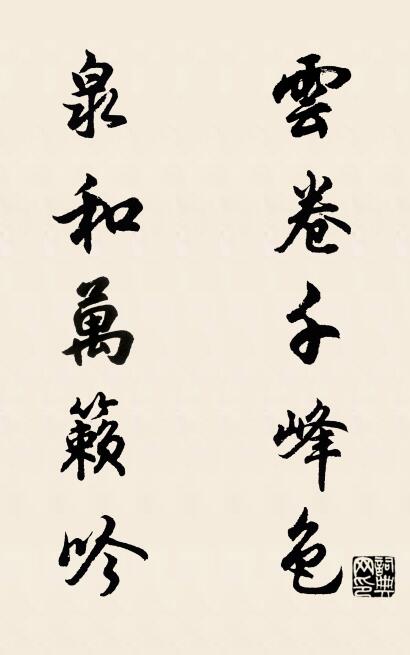 雲卷千峰色
泉和萬籟吟
詞典网印